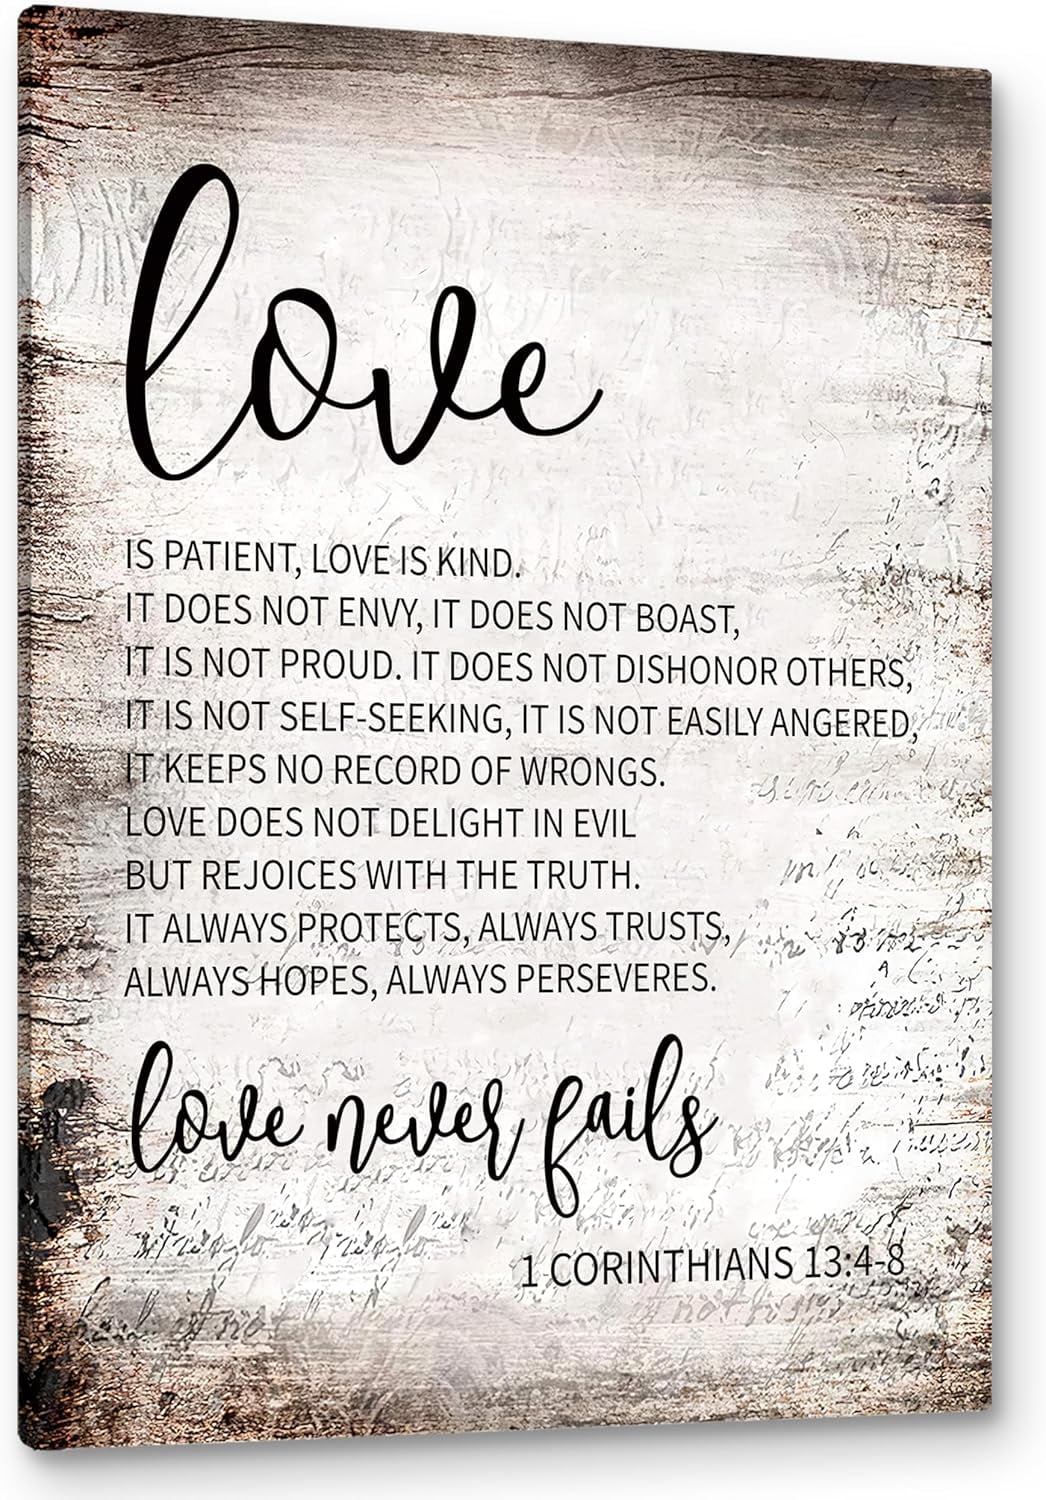 love
IS PATIENT, LOVE IS KIND.
IT DOES NOT ENVY, IT DOES NOT BOAST,
IT IS NOT PROUD. IT DOES NOT DISHONOR OTHERS,
IT IS NOT SELF-SEEKING, IT IS NOT EASILY ANGERED,
IT KEEPS NO RECORD OF WRONGS.
LOVE DOES NOT DELIGHT IN EVIL
BUT REJOICES WITH THE TRUTH.
IT ALWAYS PROTECTS, ALWAYS TRUSTS,
ALWAYS HOPES, ALWAYS PERSEVERES.
love never fails
1 CORINTHIANS 13:4-8